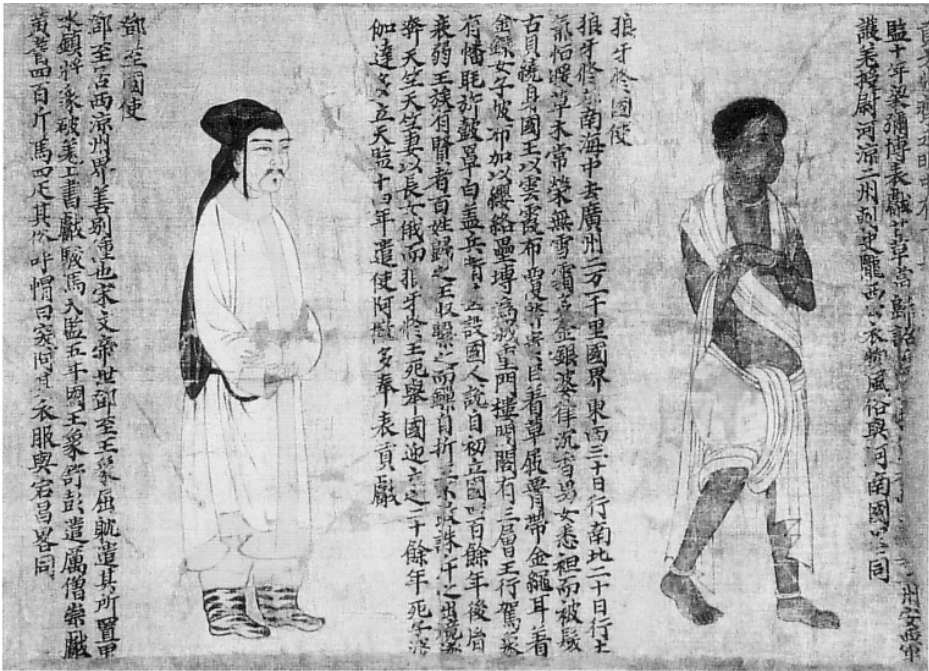 州安西將
監十年梁彌博表獻甘草當歸詔
護羌校尉河涼二州刺史隴西公衣物風俗與河南國略同
狼牙脩國使
狼牙脩在南海中去廣州二万四千里國界東西三十日行南北二十日行土
氣恒暖草木常榮無雪霜多金銀婆律沉香男女悉袒而被髮
古貝繞身國王以雲霞布覆貴臣着草屐帶金繩耳着
金鐶女子披布加以纓絡壘塼為城重門樓閣閣有三層王行駕象
有幡毦旂鼓罩白盖兵設國人說自初立國四百餘年後嗣
衰弱王族有賢者百姓歸之王收繫之而鏁自折不敢誅斥之出境遂
奔天竺天竺妻以長女俄而狼牙脩王死舉國迎立之二十餘年死子婆
伽達多立天監十四年遣使阿撤多奉表貢獻
鄧至國使
鄧至古西涼州界羌別種也宋文帝世鄧至王象屈躭遣其所置甲
水鎮將象破羌上書獻駿馬天監五年國王象舒彭遣厲僧崇獻
黄耆四百斤馬四疋其俗呼帽曰突何其衣服與宕昌畧同